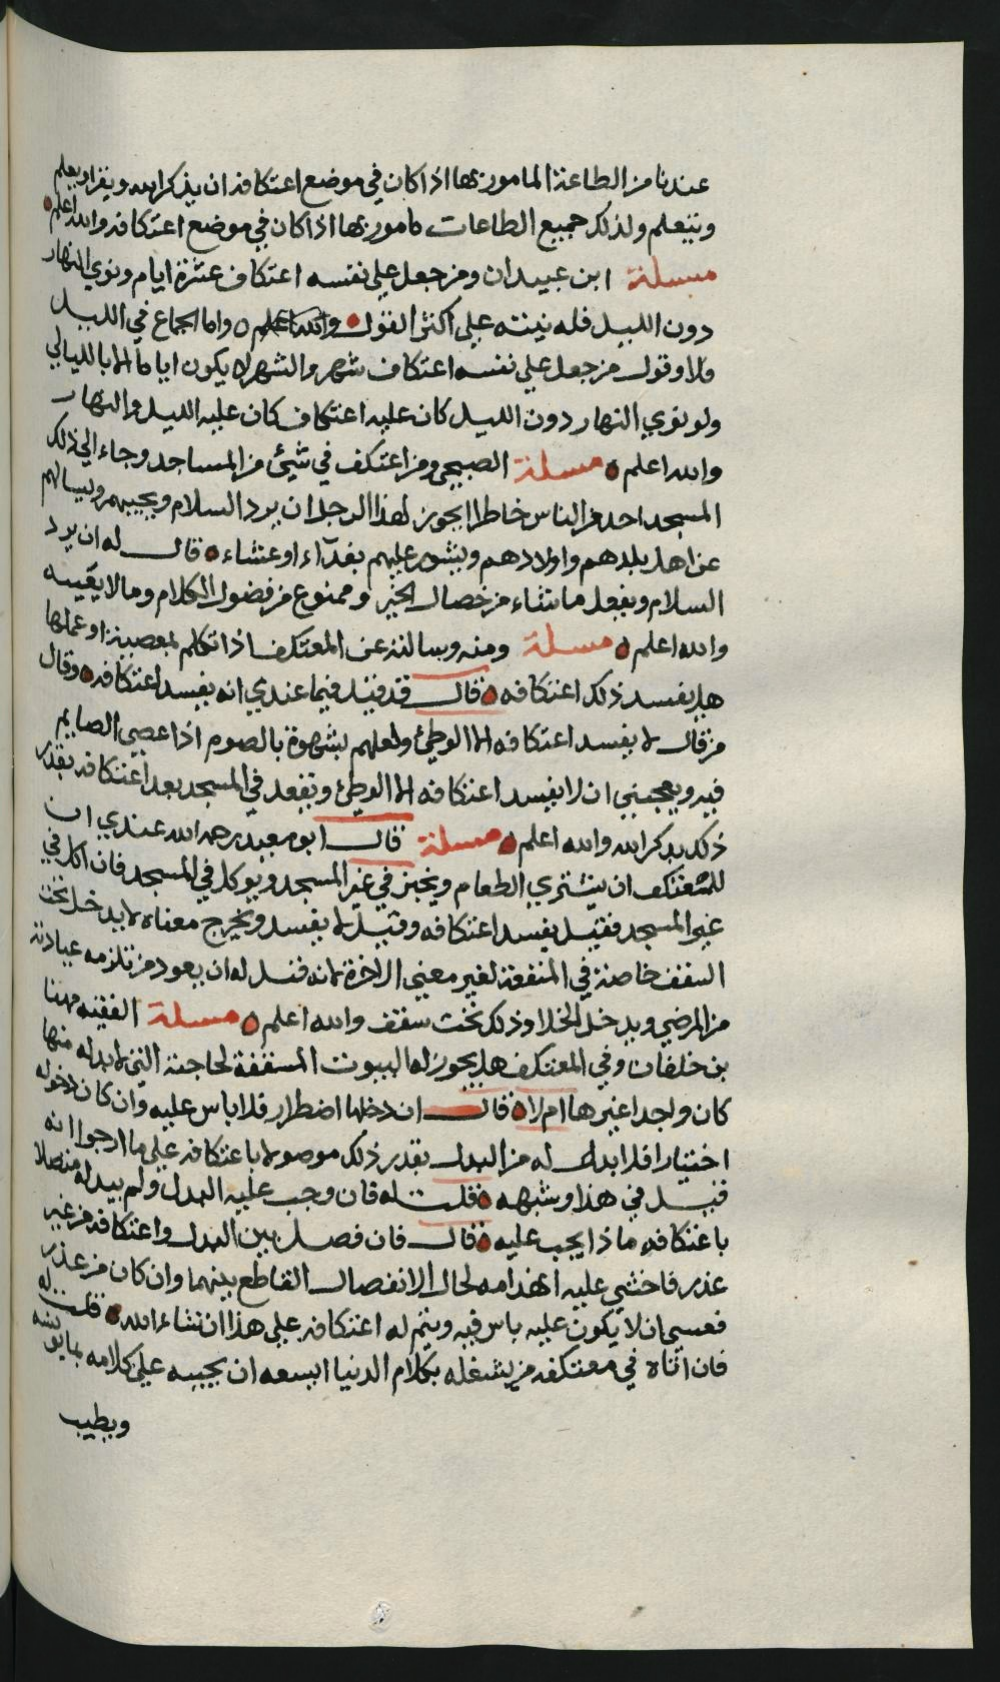 عندنا من الطاعة المامور بها اذا كان في موضع اعتكافه ان يذكر الله ويقرا ويعلم
ويتعلم ولذلك جميع الطاعات مامور بها اذا كان في موضع اعتكافه والله اعلم
مسلة ابن عبيدان ومن جعل على نفسه اعتكاف عشرة ايام ونوي النهار
دون الليل فله نيته على اكثر القول والله اعلم واما الجماع في الليل
فلا وقول من جعل علي نفسه اعتكاف شهر والشهر لا يكون اياما الا بالليالي
ولو نوي النهار دون الليل كان عليه اعتكاف كان عليه الليل والنهار
والله اعلم مسلة الصبحي ومن اعتكف في شيئ من المساجد وجاء الي ذلك
المسجد احد من الناس خاطرا ايجوز لهذا الرجل ان يرد السلام ويجيبهم ويسالهم
عن اهل بلدهم واولادهم ويشور عليهم بغدآء او عشاء قال له ان يرد
السلام ويفعل ما شاء من خصال الخير وممنوع من فضول الكلام وما لا يعنيه
والله اعلم مسلة ومنه وسالته عن المعتكف اذا تكلم بمعصية او عملها
هل يفسد ذلك اعتكافه قال قد قيل فيما عندي انه يفسد اعتكافه وقال
من قال لا يفسد اعتكافه الا الوطئ ولعلهم بشهوة بالصوم اذا عصي الصايم
فيه ويعجبني ان لا يفسد اعتكافه الا الوطئ ويقعد في المسجد بعد اعتكافه بقدر
ذلك يذكر الله والله اعلم مسلة قال ابو معبد رحمه الله عندي ان
للمعتكف ان يشتري الطعام ويخبز في غير المسجد ويوكل في المسجد فان اكل في
غير المسجد فقيل يفسد اعتكافه وقيل لا يفسد ويخرج معناه لا يدخل تحت
السقف خاصة في المنفعة لغير معني الاخرة لانه قيل له ان يعود من تلزمه عيادته
من المرضي ويدخل الخلا وذلك تحت سقف والله اعلم مسلة الفقيه مهنا
بن خلفان وفي المعتكف هل يجوز له البيوت المسقفة لحاجته التي لابد له منها
كان واجدا غيرها ام لا قال ان دخلها اضطرار فلا باس عليه وان كان دخوله
اختيارا فلا بد له من البدل بقدر ذلك موصولا باعتكافه علي ما ارجوا انه
قيل في هذا وشبهه قلت له فان وجب عليه البدل ولم يبدله متصلا
باعتكافه ماذا يجب عليه قال فان فصل بين البدل واعتكافه من غير
عذر فاخشي عليه انهدامه لحال الانفصال القاطع بينهما وان كان من عذر
فعسي ان لا يكون عليه باس فيه ويتم له اعتكافه علي هذا ان شاء الله قلت له
فان اتاه في معتكفه من يشغله بكلام الدنيا ايسعه ان يجيبه علي كلامه بما يونسه
ويطيب